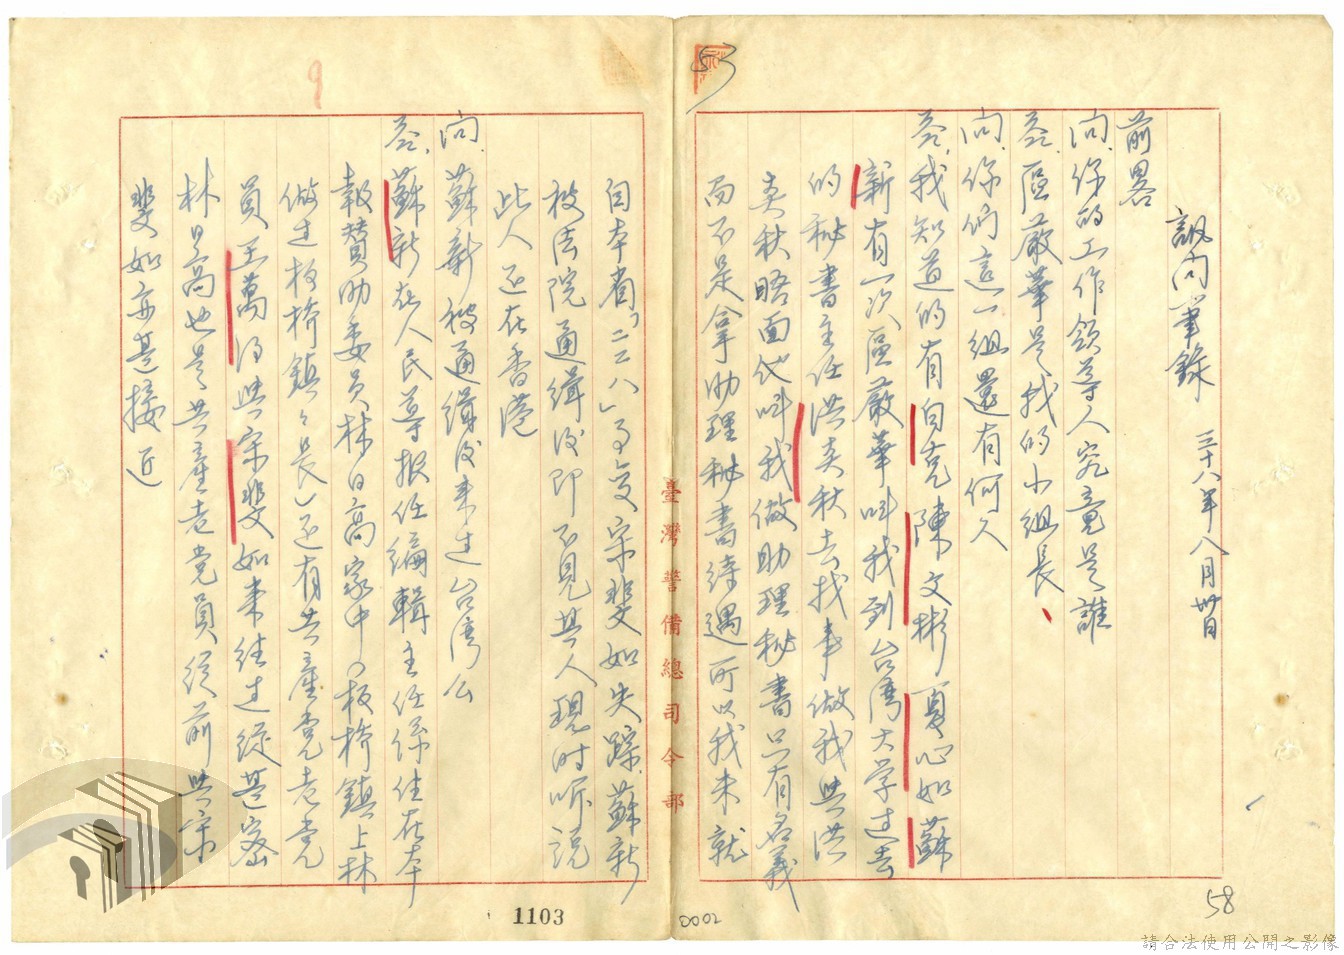 訊問筆錄 三十八年八月卅日
前畧
問、你的工作領導人究竟是誰
答、區嚴華是我的小組長、
問、你們這一組還有何人
答、我知道的有白克陳文彬夏心如蘇
新有一次區嚴華叫我到台湾大学过去
的秘書主任洪炎秋去找事做我與洪
炎秋晤面他叫我做助理秘書只有名義
而不是拿助理秘書待遇所以我未就
自本省「二二八」事变宋斐如失踪蘇新
被法院通緝後即不見其人現时听説
此人还在香港
問、蘇新被通緝後来过台湾么
答、蘇新在人民導报任編輯主任係住在本
報賛助委員林日高家中（板橋鎮上林
做过板橋鎮々長）还有共產党老党
員王萬得與宋斐如来往过縱甚密
林日高也是共產老党員從前與宋
斐如亦甚接近
臺灣警備總司令部
53
9
1103
0002
58
請合法使用公開之影像